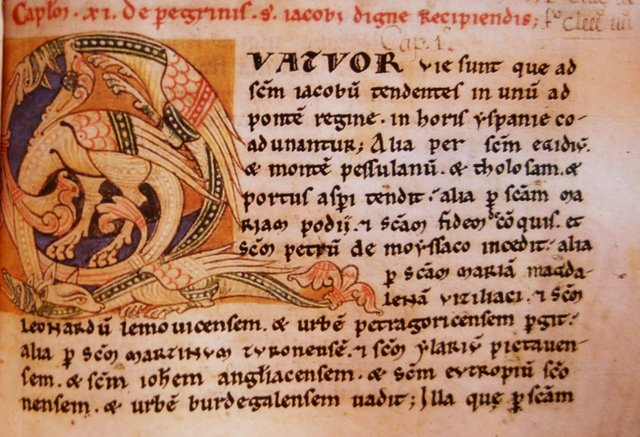 Caplm. xi. de pegrinis. S. iacobi digne Recipiendis;
Cap. 1.
QUATUOR vie sunt que ad
scm̄ iacobū tendentes in unū ad
pontē regine. in horis yspanie co-
adunantur; Alia per scm̄ egidiū.
& montē pessulanū. & tholosam. &
portus aspi tendit. alia ꝑ scām ma
riam podii. ⁊ scām fidem cōquis. et
scm̄ petrū de moyssaco incedit. alia
ꝑ scām mariā magda-
lenā viziliaci. ⁊ scm̄
leonardū lemovicensem. & urbē petragoricensem pgit.
alia ꝑ scm̄ martinum turonensē. ⁊ scm̄ ylariū pictaven-
sem. & scm̄ iohem angliacensem. & scm̄ eutropiū scō
nensem. & urbē burdegalensem vadit; Illa que ꝑ scām